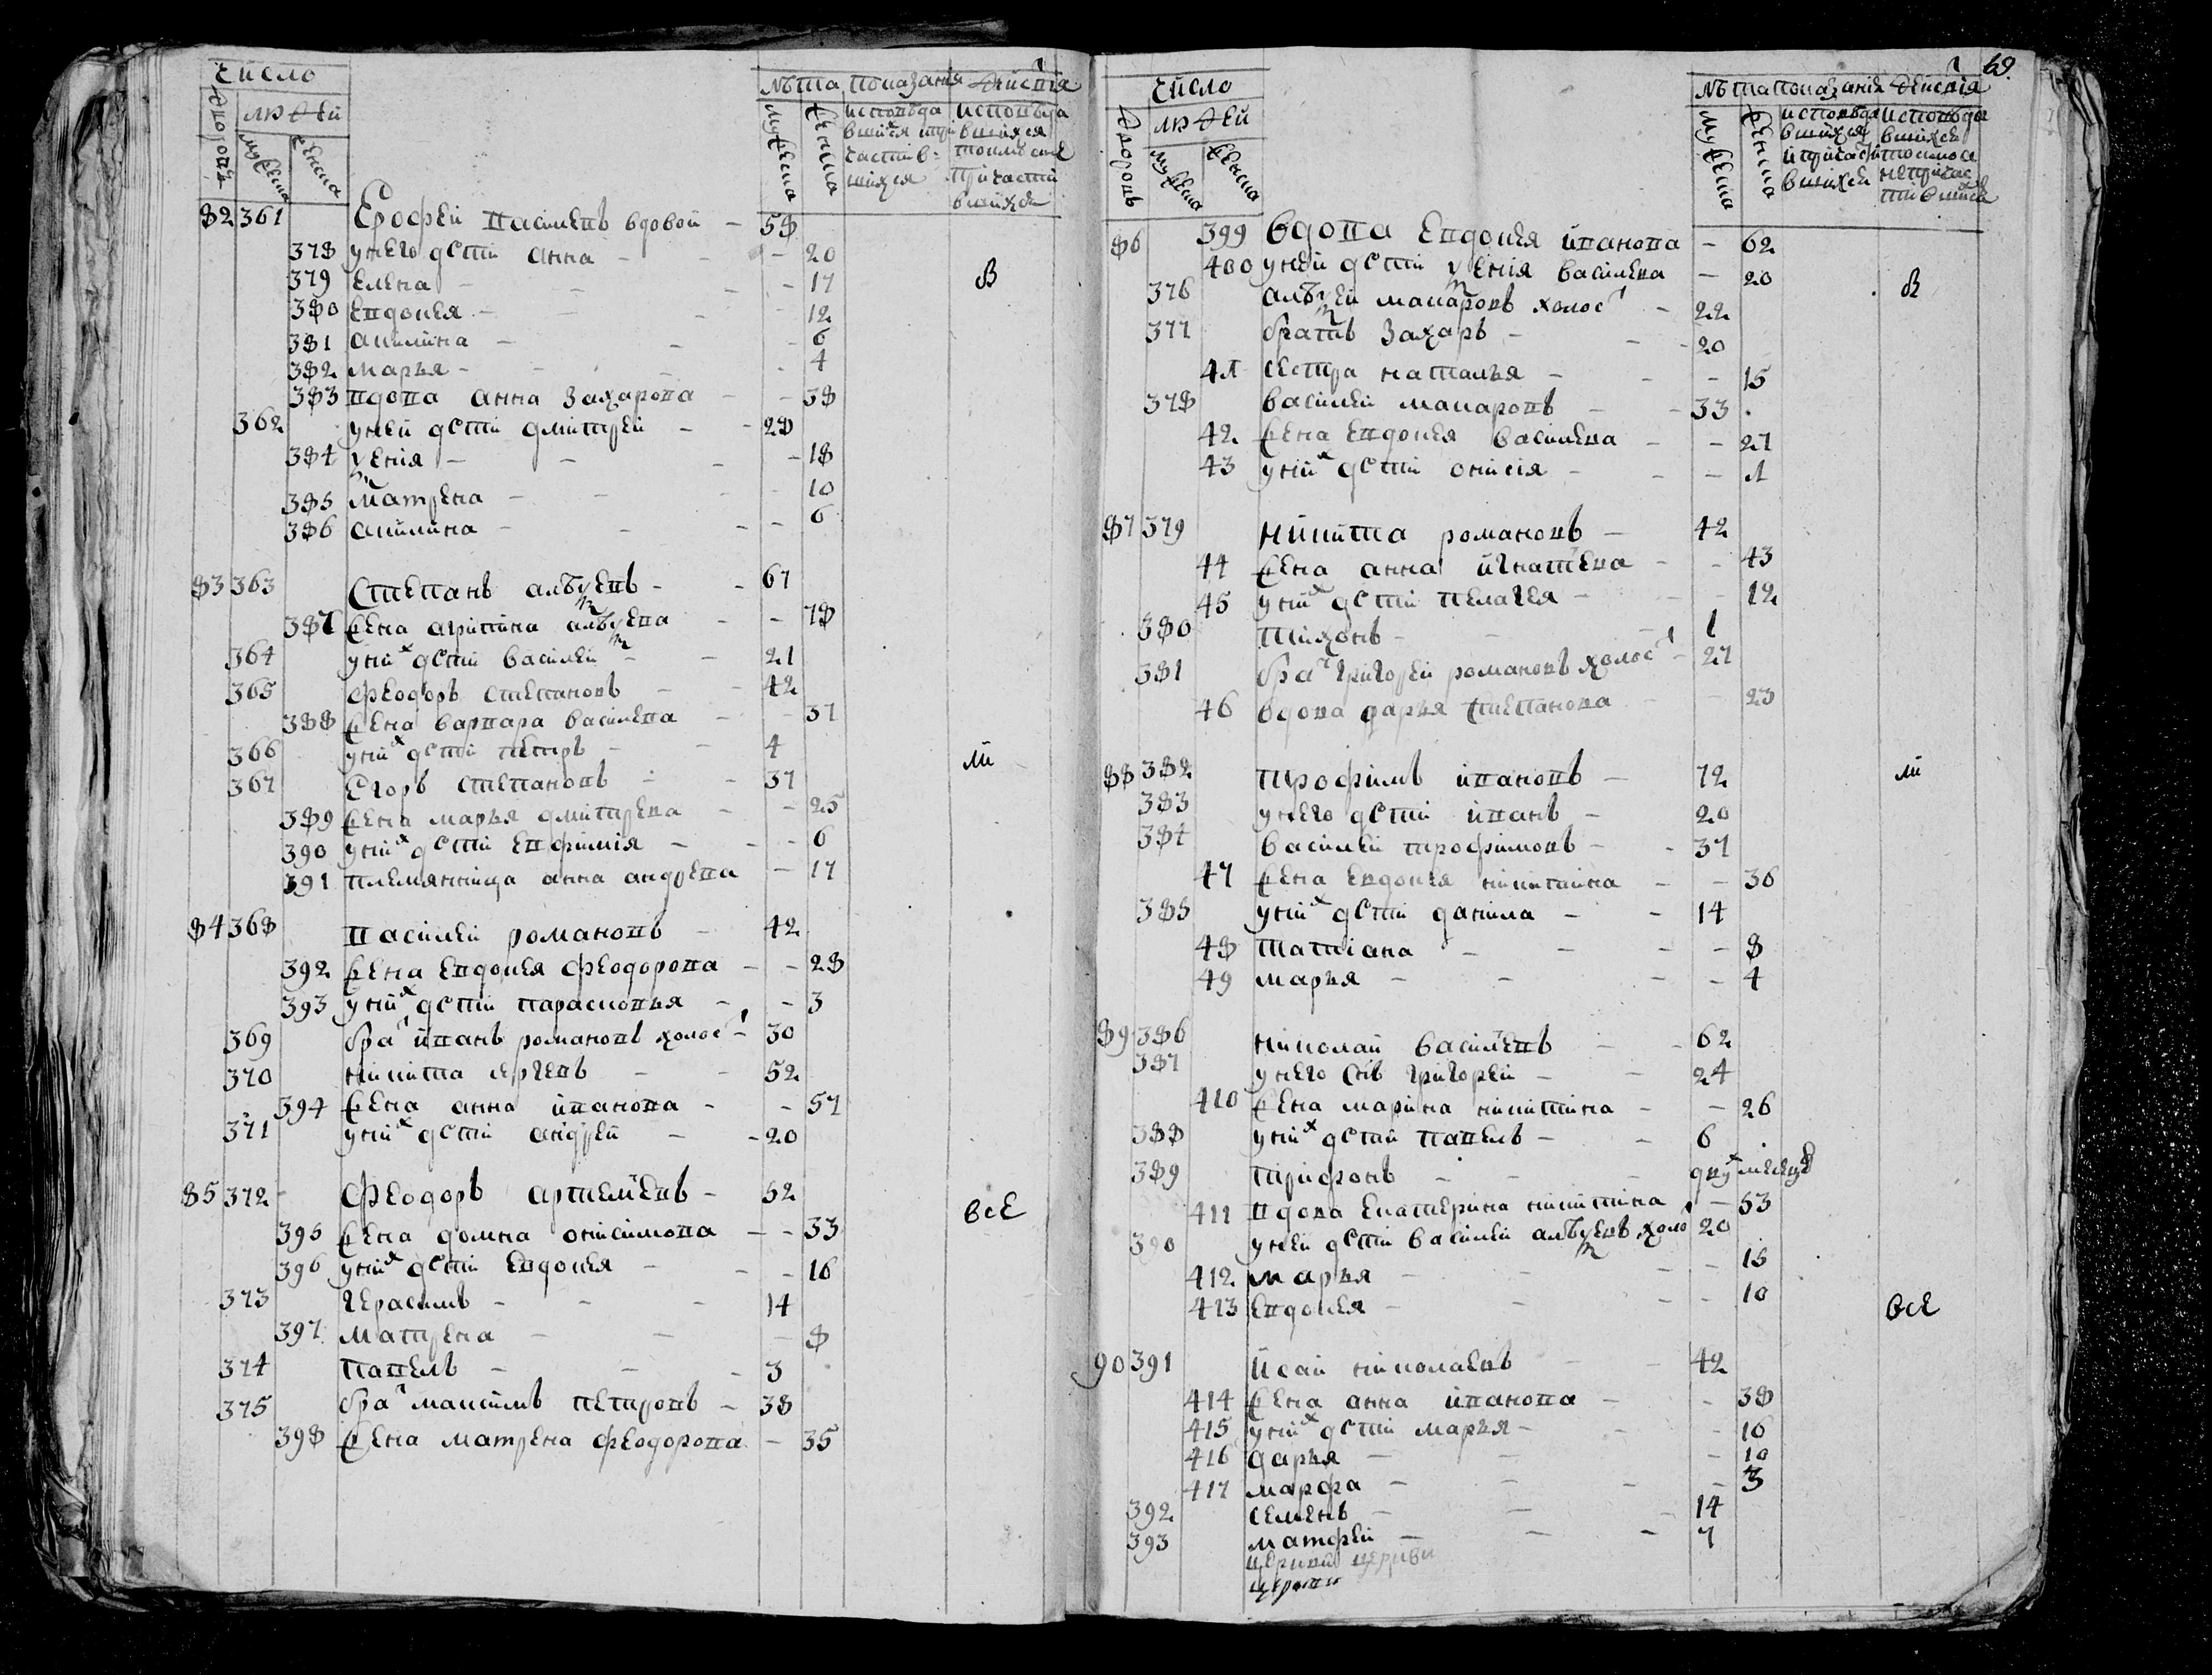 Число
Дворовъ
людей
мужеска
женска
лѣта
показанія дѣйствія
мужеска
женска
исповѣда
вшихся при
частив=
шихся
исповѣда
вшихся
токмо а не
причасти
вшихся
82 361 Ерофей Васильевъ вдовой - 58
378 у него дети анна - 20
379 Елена - 17
380 Евдокея - 12
381 акилина - 6
382 Марья - 4
383 вдова анна Захарова - 38
362 у ней дети дмитрей - 28
384 ѯения - 18
385 Матрена - 10
386 акилина - 6
83 363 Степанъ алѣѯевъ - 67
387 жена агрипина алѣѯева - 78
364 у них дети василей - 21
365 Феодоръ степановъ - 42
388 жена варвара васильева - 37
366 у них дети петръ - 4
367 Егоръ степановъ - 37
389 жена марья дмитрева - 25
390 у них дети Евфимія - 6
391 племянница анна андрева - 17
84 368 Василей романовъ - 42
392 жена Евдокея феодорова - 28
393 у них дети парасковья - 3
369 брат иванъ романовъ холост - 30
370 никита сергевъ - 52
394 жена анна иванова - 57
371 у них дети андрей - 20
85 372 Феодоръ артемьевъ - 52
395 жена домна онисимова - 33
396 у них дети Евдокея - 16
373 герасимъ - 14
397 Матрена - 8
374 павелъ - 3
375 брат максимъ петровъ - 38
398 жена матрена феодорова - 35
в
ли
все
69
Число
Дворовъ
людей
мужеска
женска
лѣта показанія дѣйствія
мужеска
женска
исповѣда
вшихся
и причасти
вшихся
исповѣда
вшихся
токмо а
непричас
тившихся
86 399 вдова Евдокея иванова - 62
400 у ней дети ѯения васильева - 20
376 алѣѯей макаровъ холост - 22
377 братъ Захаръ - 20
41 сестра наталья - 15
378 василей макаровъ - 33
42 жена Евдокея васильева - 27
43 у них дети онисія - 1
87 379 никита романовъ - 42
44 жена анна игнатьева - 43
45 у них дети пелагея - 12
380 тихонъ - 1
381 брат григорей романовъ холост - 27
46 вдова дарья степанова - 23
88 382 трофимъ ивановъ - 72
383 у него дети иванъ - 20
384 василей трофимовъ - 37
47 жена Евдокея никитина - 36
385 у них дети данила - 14
48 татіана - 8
49 марья - 4
89 386 николай васильевъ - 62
387 у него снъ григорей - 24
410 жена марина никитина - 26
388 у них дети павелъ - 6
389 трифонъ - двух месяцъ
411 вдова Екатерина никитина - 53
390 у ней дети василей алѣѯевъ холо 20
412 марья - 15
413 Евдокея - 10
90 391 Исай николаевъ - 42
414 жена анна иванова - 38
415 у них дети марья - 16
416 дарья - 10
417 марфа - 3
392 семенъ - 14
393 матфей - 7
церкви церкви
церкви
в
ли
все